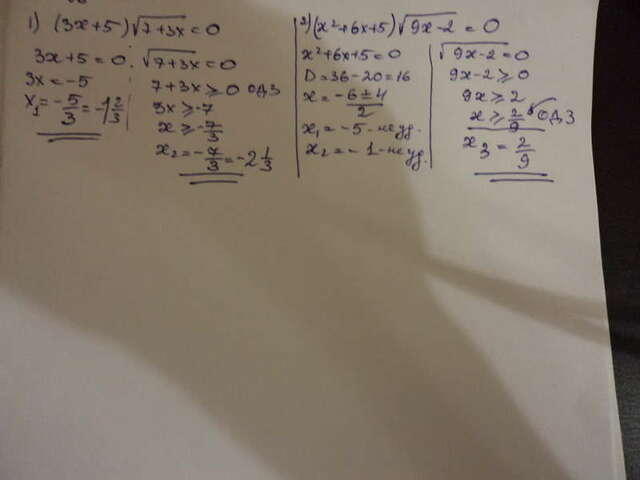 1) (3x+5)√7+3x = 0
3x+5=0
3x=-5
x₁=-5/3=-1 2/3
√7+3x=0
7+3x≥0 ОДЗ
3x≥-7
x≥-7/3
x₂=-7/3=-2 1/3
2) (x²+6x+5)√9x-2 = 0
x²+6x+5=0
D=36-20=16
x=-6±4/2
x₁=-5-не уд.
x₂=-1-не уд.
√9x-2=0
9x-2≥0
9x≥2
x≥2/9 ОДЗ
x₃=2/9